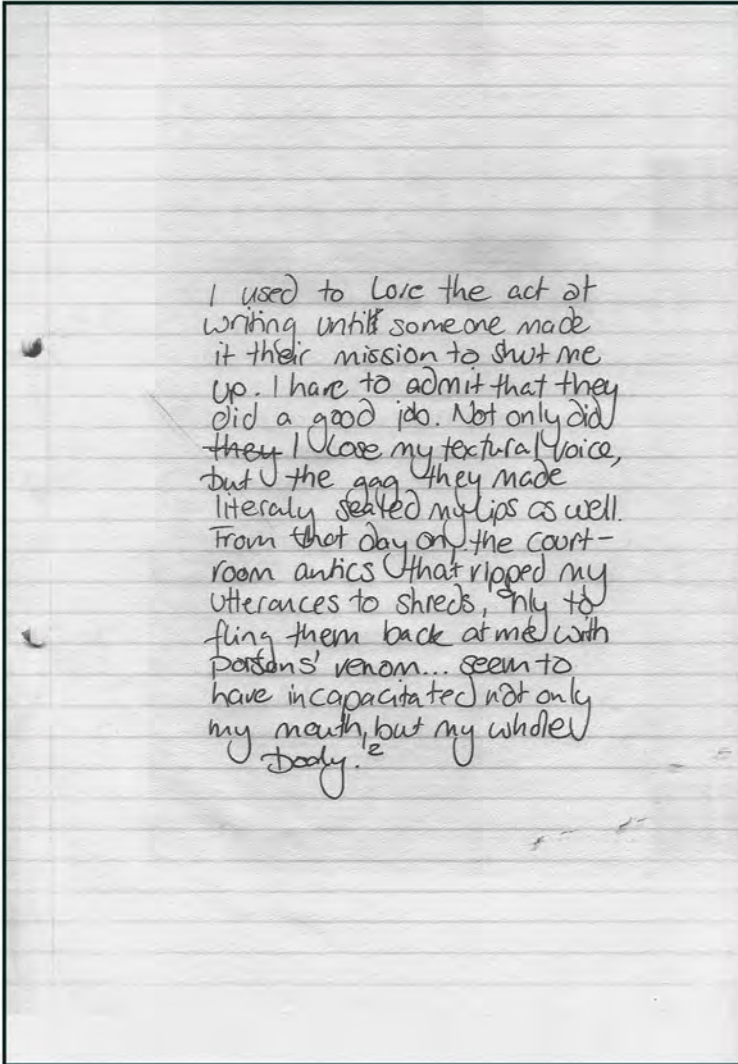 I used to love the act of
writing untill someone made
it their mission to shut me
up. I have to admit that they
did a good job. Not only did
they I lose my textural voice,
but the gag they made
literaly sealed my lips as well.
From that day on, the court-
room antics that ripped my
utterances to shreds, only to
fling them back at me with
venom... seem to
have incapacitated not only
my mouth, but my whole
body.²